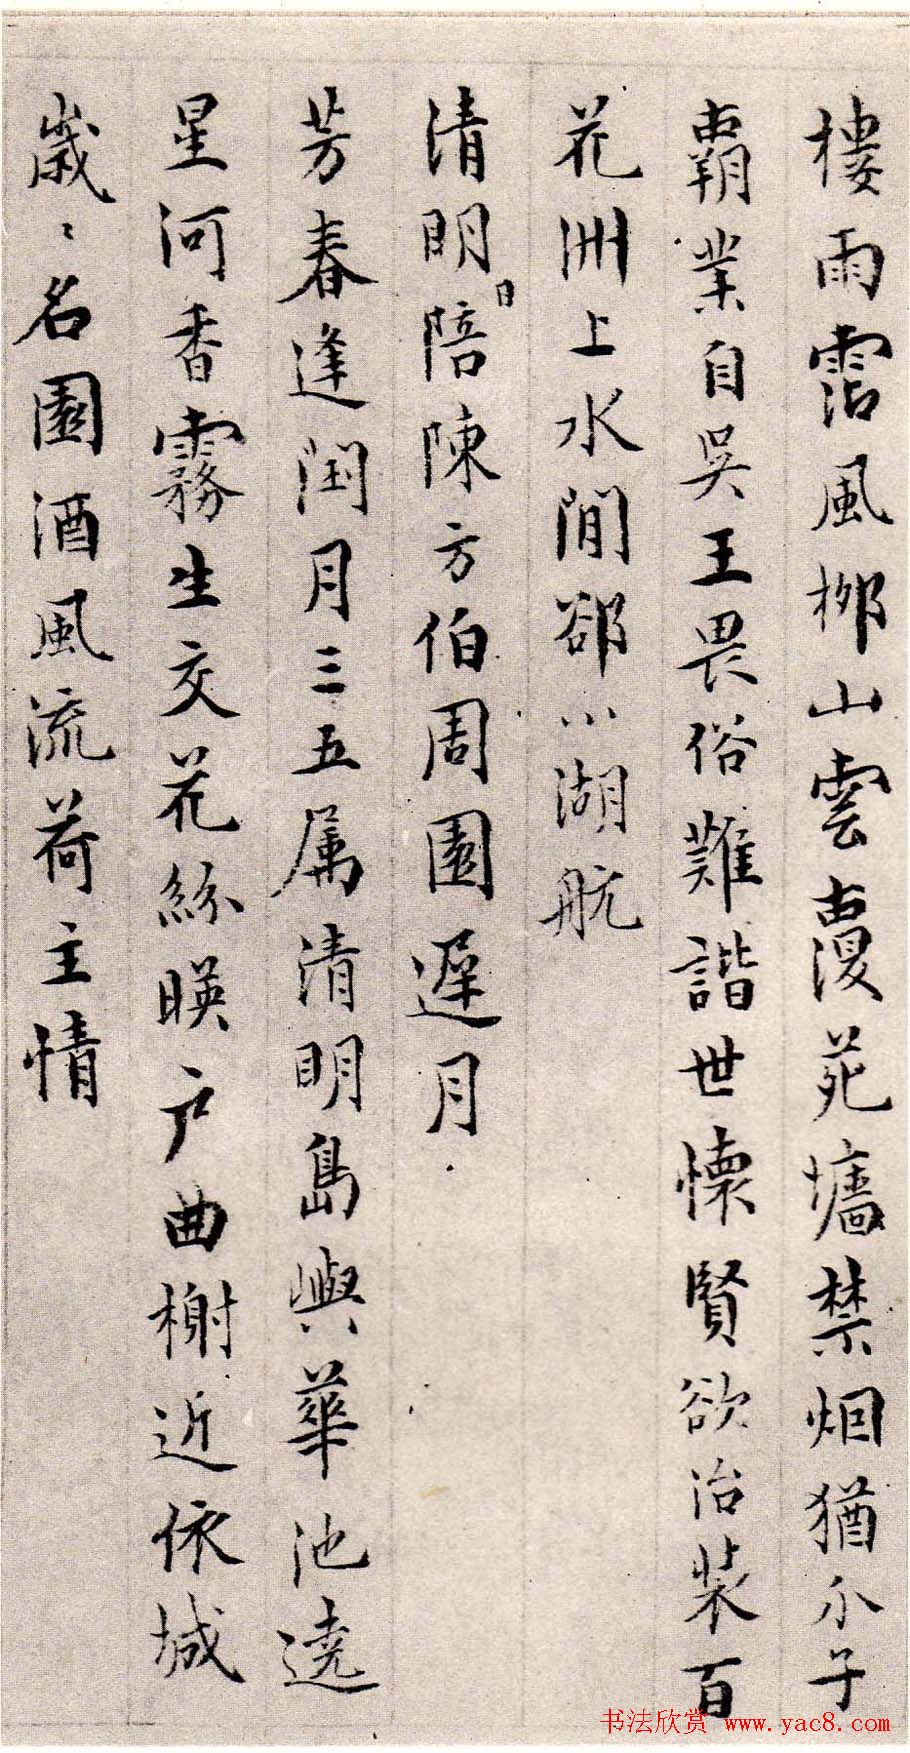 樓雨霑風栁山雲覆苑墻禁烟猶介子
霸業自吳王畏俗難諧世懷賢欲治裝百
花洲上水閒郤小湖航
清明日陪陳方伯周園遲月
芳春逢閏月三五属清明島嶼華池遶
星河香霧生交花絲暎户曲榭近依城
歲〻名園酒風流荷主情
书法欣赏 www.yac8.com